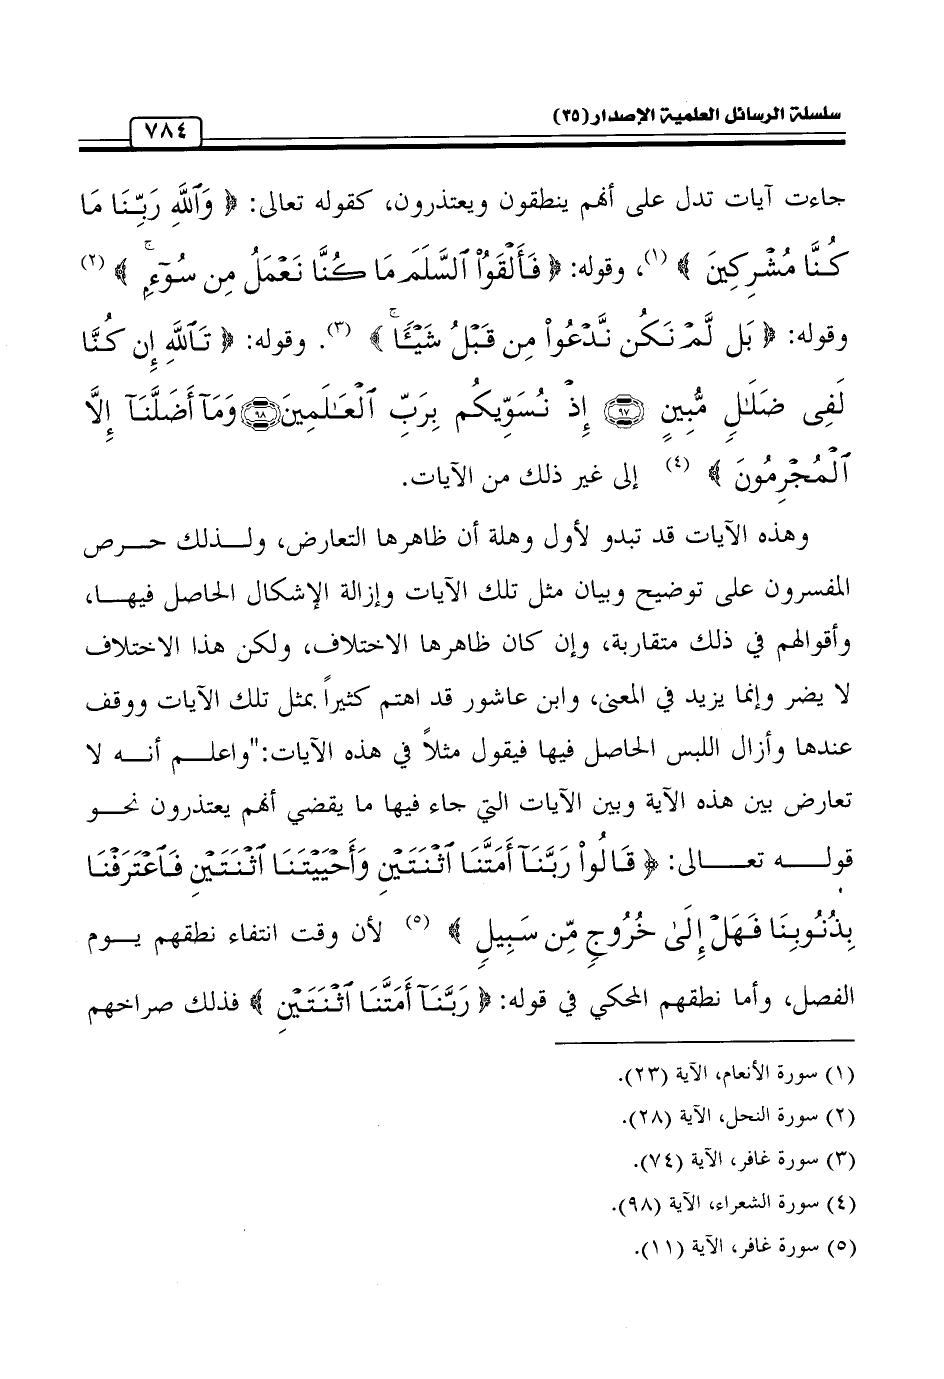 سلسلة الرسائل العلمية الإصدار (٣٥)
٧٨٤
جاءت آيات تدل على أنهم ينطقون ويعتذرون، كقوله تعالى: ﴿ وَٱللَّهِ رَبِّنَا مَا
كُنَّا مُشْرِكِينَ ﴾ (١)، وقوله: ﴿ فَأَلْقَوُا۟ ٱلسَّلَمَ مَا كُنَّا نَعْمَلُ مِن سُوٓءٍۭ ۚ ﴾ (٢)
وقوله: ﴿ بَل لَّمْ نَكُن نَّدْعُوا۟ مِن قَبْلُ شَيْـًٔا ۚ ﴾ (٣). وقوله: ﴿ تَٱللَّهِ إِن كُنَّا
لَفِى ضَلَـٰلٍ مُّبِينٍ ٩٧ إِذْ نُسَوِّيكُم بِرَبِّ ٱلْعَـٰلَمِينَ ٩٨ وَمَآ أَضَلَّنَآ إِلَّا
ٱلْمُجْرِمُونَ ﴾ (٤) إلى غير ذلك من الآيات.
وهذه الآيات قد تبدو لأول وهلة أن ظاهرها التعارض، ولـذلك حـرص
المفسرون على توضيح وبيان مثل تلك الآيات وإزالة الإشكال الحاصل فيهـا،
وأقوالهم في ذلك متقاربة، وإن كان ظاهرها الاختلاف، ولكن هذا الاختلاف
لا يضر وإنما يزيد في المعنى، وابن عاشور قد اهتم كثيراً بمثل تلك الآيات ووقف
عندها وأزال اللبس الحاصل فيها فيقول مثلاً في هذه الآيات:"واعلـم أنـه لا
تعارض بين هذه الآية وبين الآيات التي جاء فيها ما يقضي أنهم يعتذرون نحـو
قولـه تعـالى: ﴿ قَالُوا۟ رَبَّنَآ أَمَتَّنَا ٱثْنَتَيْنِ وَأَحْيَيْتَنَا ٱثْنَتَيْنِ فَٱعْتَرَفْنَا
بِذُنُوبِنَا فَهَلْ إِلَىٰ خُرُوجٍ مِّن سَبِيلٍ ﴾ (٥) لأن وقت انتفاء نطقهم يـوم
الفصل، وأما نطقهم المحكي في قوله: ﴿ رَبَّنَآ أَمَتَّنَا ٱثْنَتَيْنِ ﴾ فذلك صراخهم
(١) سورة الأنعام، الآية (٢٣).
(٢) سورة النحل، الآية (٢٨).
(٣) سورة غافر، الآية (٧٤).
(٤) سورة الشعراء، الآية (٩٨).
(٥) سورة غافر، الآية (١١).